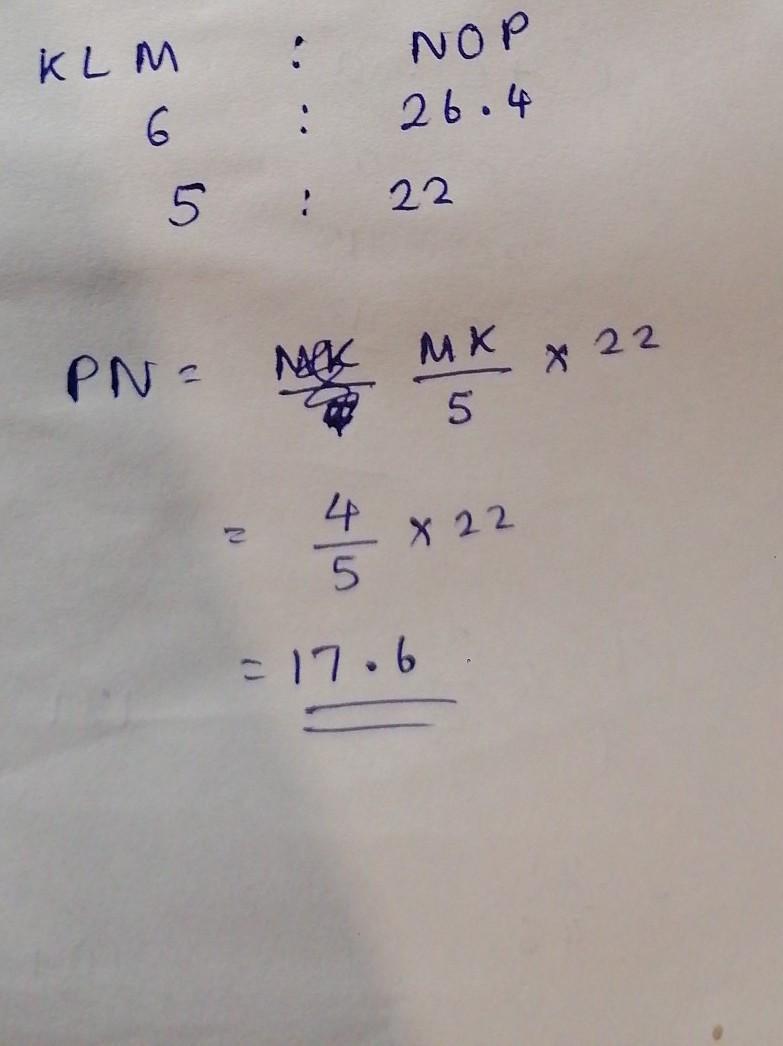 KLM : NOP
6 : 26.4
5 : 22
PN = MK/5 × 22
= 4/5 × 22
= 17.6